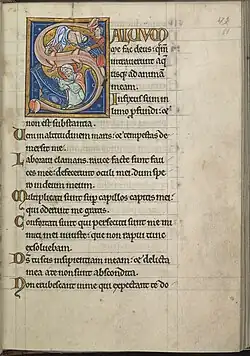 SALVUM
me fac deus: qm̄
intraverunt aq̄
usq; ad animā
meam.
Infixus sum in
limo p̄fundi: et
non est substantia.
Veni in altitudinem maris: et tempestas de
mersit me.
Laboravi clamans, rauce facte sunt fau
ces mee: defecerunt oculi mei, dum spe
ro in deum meum.
Multiplicati sunt sup̄ capillos capitis mei:
qui oderunt me gratis.
Confortati sunt qui persecuti sunt me ini
mici mei iniuste: que non rapui tunc
exsoluebam.
D̄s tu scis insipientiam meam: et delicta
mea a te non sunt abscondita.
Non erubescant in me qui expectant te do